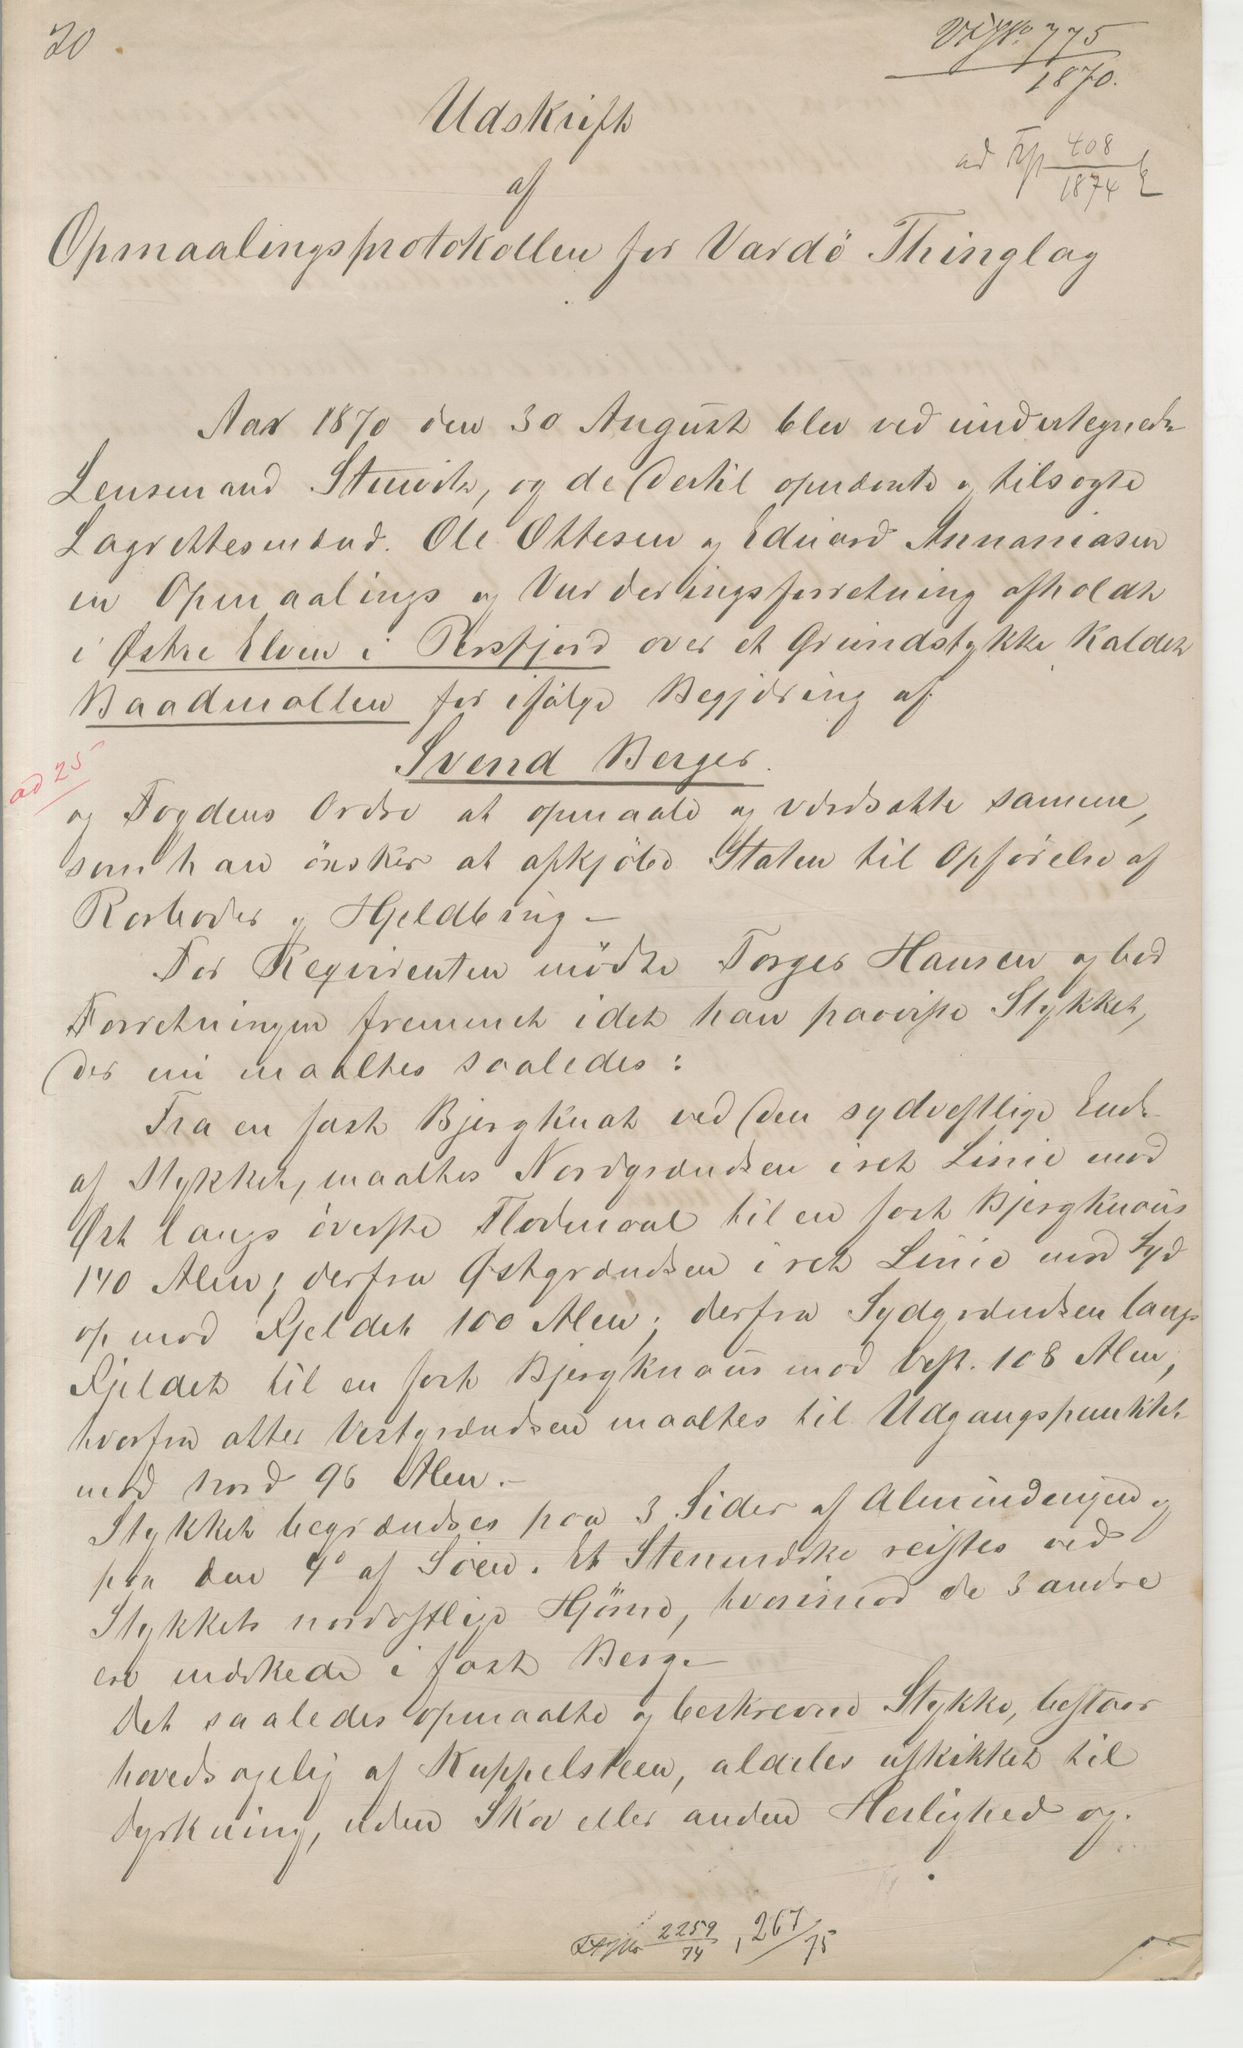 20
No. 775
1870.
ad 408
1874
Udskrift
af
Opmaalingsprotokollen for Vardö Thinglag
Aar 1870 den 30 August blev ved undertegnede
Lensmand, og de dertil opnævnte og tilsagte
Lagrettesmænd. Ole Ottesen og Eduard Annaniasen
en Opmaalings og Vurderingsforretning afholdt
i Østre Elven i Persfjord over et Grundstykke kaldet
Baadmollen for ifölge Begjæring af
Svend Berger.
ad 25
og Fogdens Ordre at opmaale og værdsætte samme,
som han önsker at afkjöbe Staten til Opförelse af
Rorboder og Hjeldbrug –
For Reqvirenten mödte Torger Hansen og bad
Forretningen fremmet idet han paaviste Stykket,
der nu maaltes saaledes:
Fra en fast Bjergknat ved den sydvestlige Ende
af Stykket, maaltes Nordgrændsen i ret Linie mod
Øst langs överste Flodmaal til en fast Bjergknaus
140 Alen; derfra Østgrændsen i ret Linie mod Syd
op mod Fjeldet 100 Alen; derfra Sydgrændsen langs
Fjeldet til en fast Bjergknaus mod Vest. 108 Alen;
hvorfra atter Vestgrændsen maaltes til Udgangspunktet
mod Nord 96 Alen. –
Stykket begrændses paa 3 Sider af Almindingen og
paa den 4de af Söen. Et Stenmærke reistes ved
Stykkets nordostlige Hjörne, hvorimod de 3 andre
ere mærkede i fast Berg –
Det saaledes opmaalte og beskrevne Stykke, bestaar
hovedsagelig af Kuppelsteen, aldeles uskikket til
Dyrkning, uden Skov eller anden Herlighed og
2259
74, 267/75